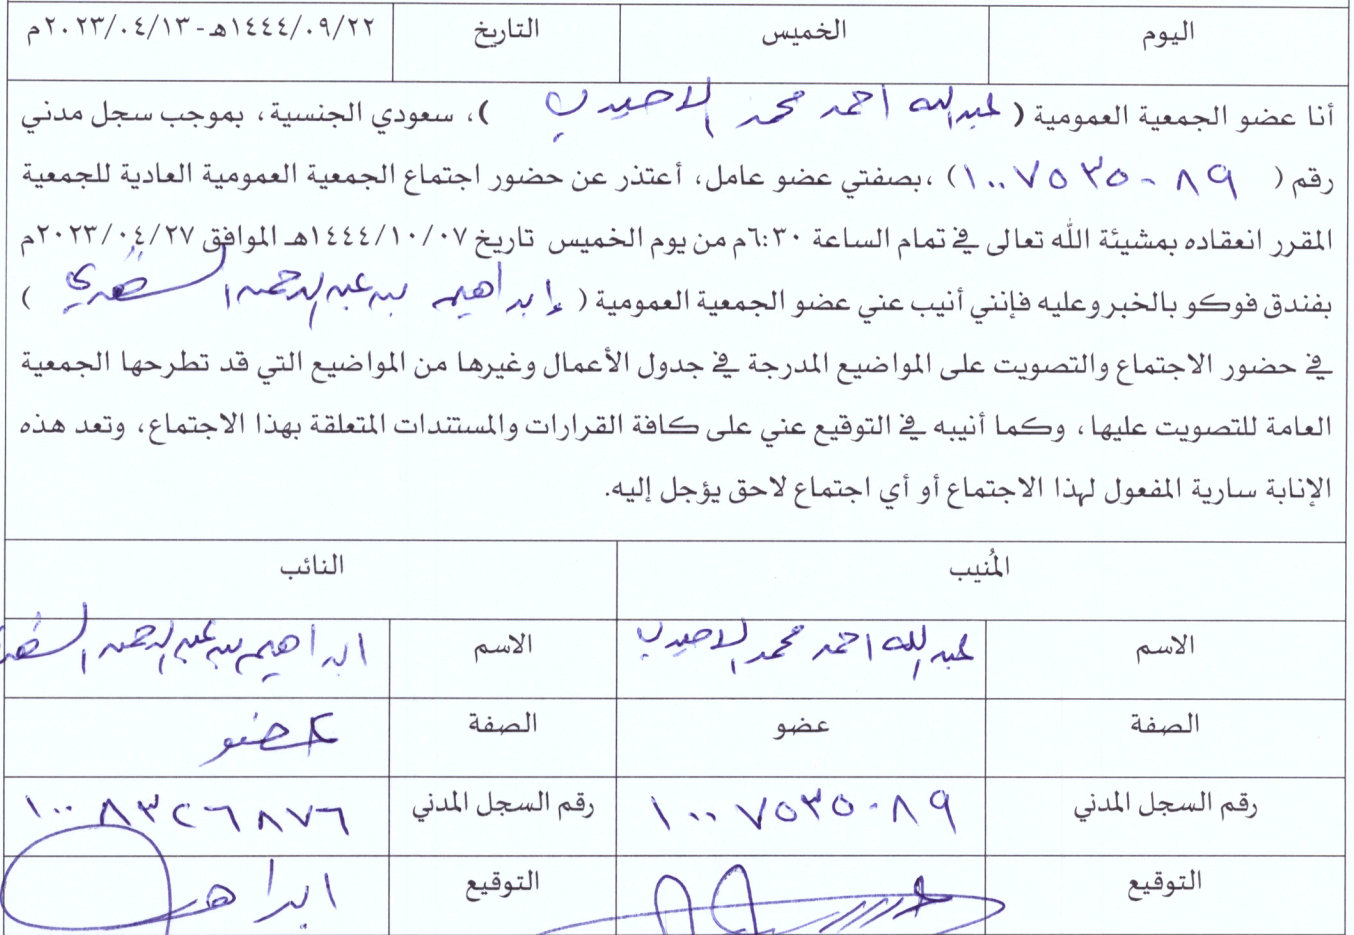 اليوم الخميس التاريخ ١٤٤٤/٠٩/٢٢هـ - ٢٠٢٣/٠٤/١٣م
أنا عضو الجمعية العمومية ( عبدالله احمد محمد الاحيدب )، سعودي الجنسية، بموجب سجل مدني
رقم ( ١٠٠٧٥٣٥٠٨٩ )، بصفتي عضو عامل، أعتذر عن حضور اجتماع الجمعية العمومية العادية للجمعية
المقرر انعقاده بمشيئة الله تعالى في تمام الساعة ٦:٣٠م من يوم الخميس تاريخ ١٤٤٤/١٠/٠٧هـ الموافق ٢٠٢٣/٠٤/٢٧م
بفندق فوكو بالخبر وعليه فإنني أنيب عني عضو الجمعية العمومية ( إبراهيم بن عبدالرحمن )
في حضور الاجتماع والتصويت على المواضيع المدرجة في جدول الأعمال وغيرها من المواضيع التي قد تطرحها الجمعية
العامة للتصويت عليها، وكما أنيبه في التوقيع عني على كافة القرارات والمستندات المتعلقة بهذا الاجتماع، وتعد هذه
الإنابة سارية المفعول لهذا الاجتماع أو أي اجتماع لاحق يؤجل إليه.
المُنيب النائب
الاسم عبدالله احمد محمد الاحيدب الاسم ابراهيم بن عبدالرحمن
الصفة عضو الصفة عضو
رقم السجل المدني ١٠٠٧٥٣٥٠٨٩ رقم السجل المدني ١٠٠٨٣٢٦٨٧٦
التوقيع التوقيع